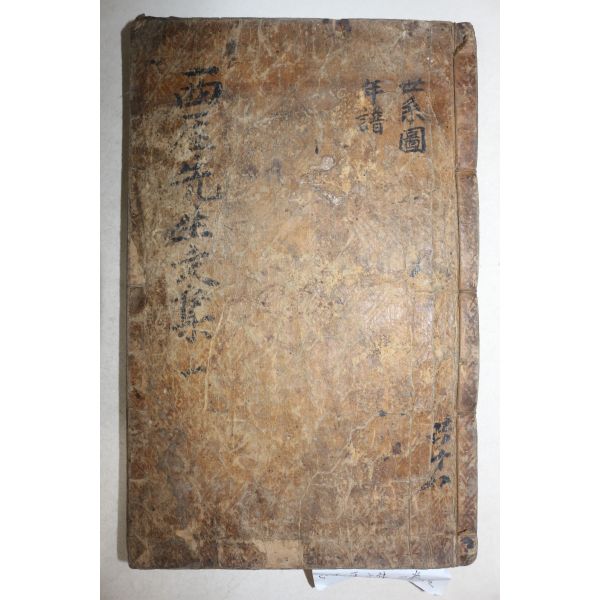 世系圖
年譜
西厓先生文集 一